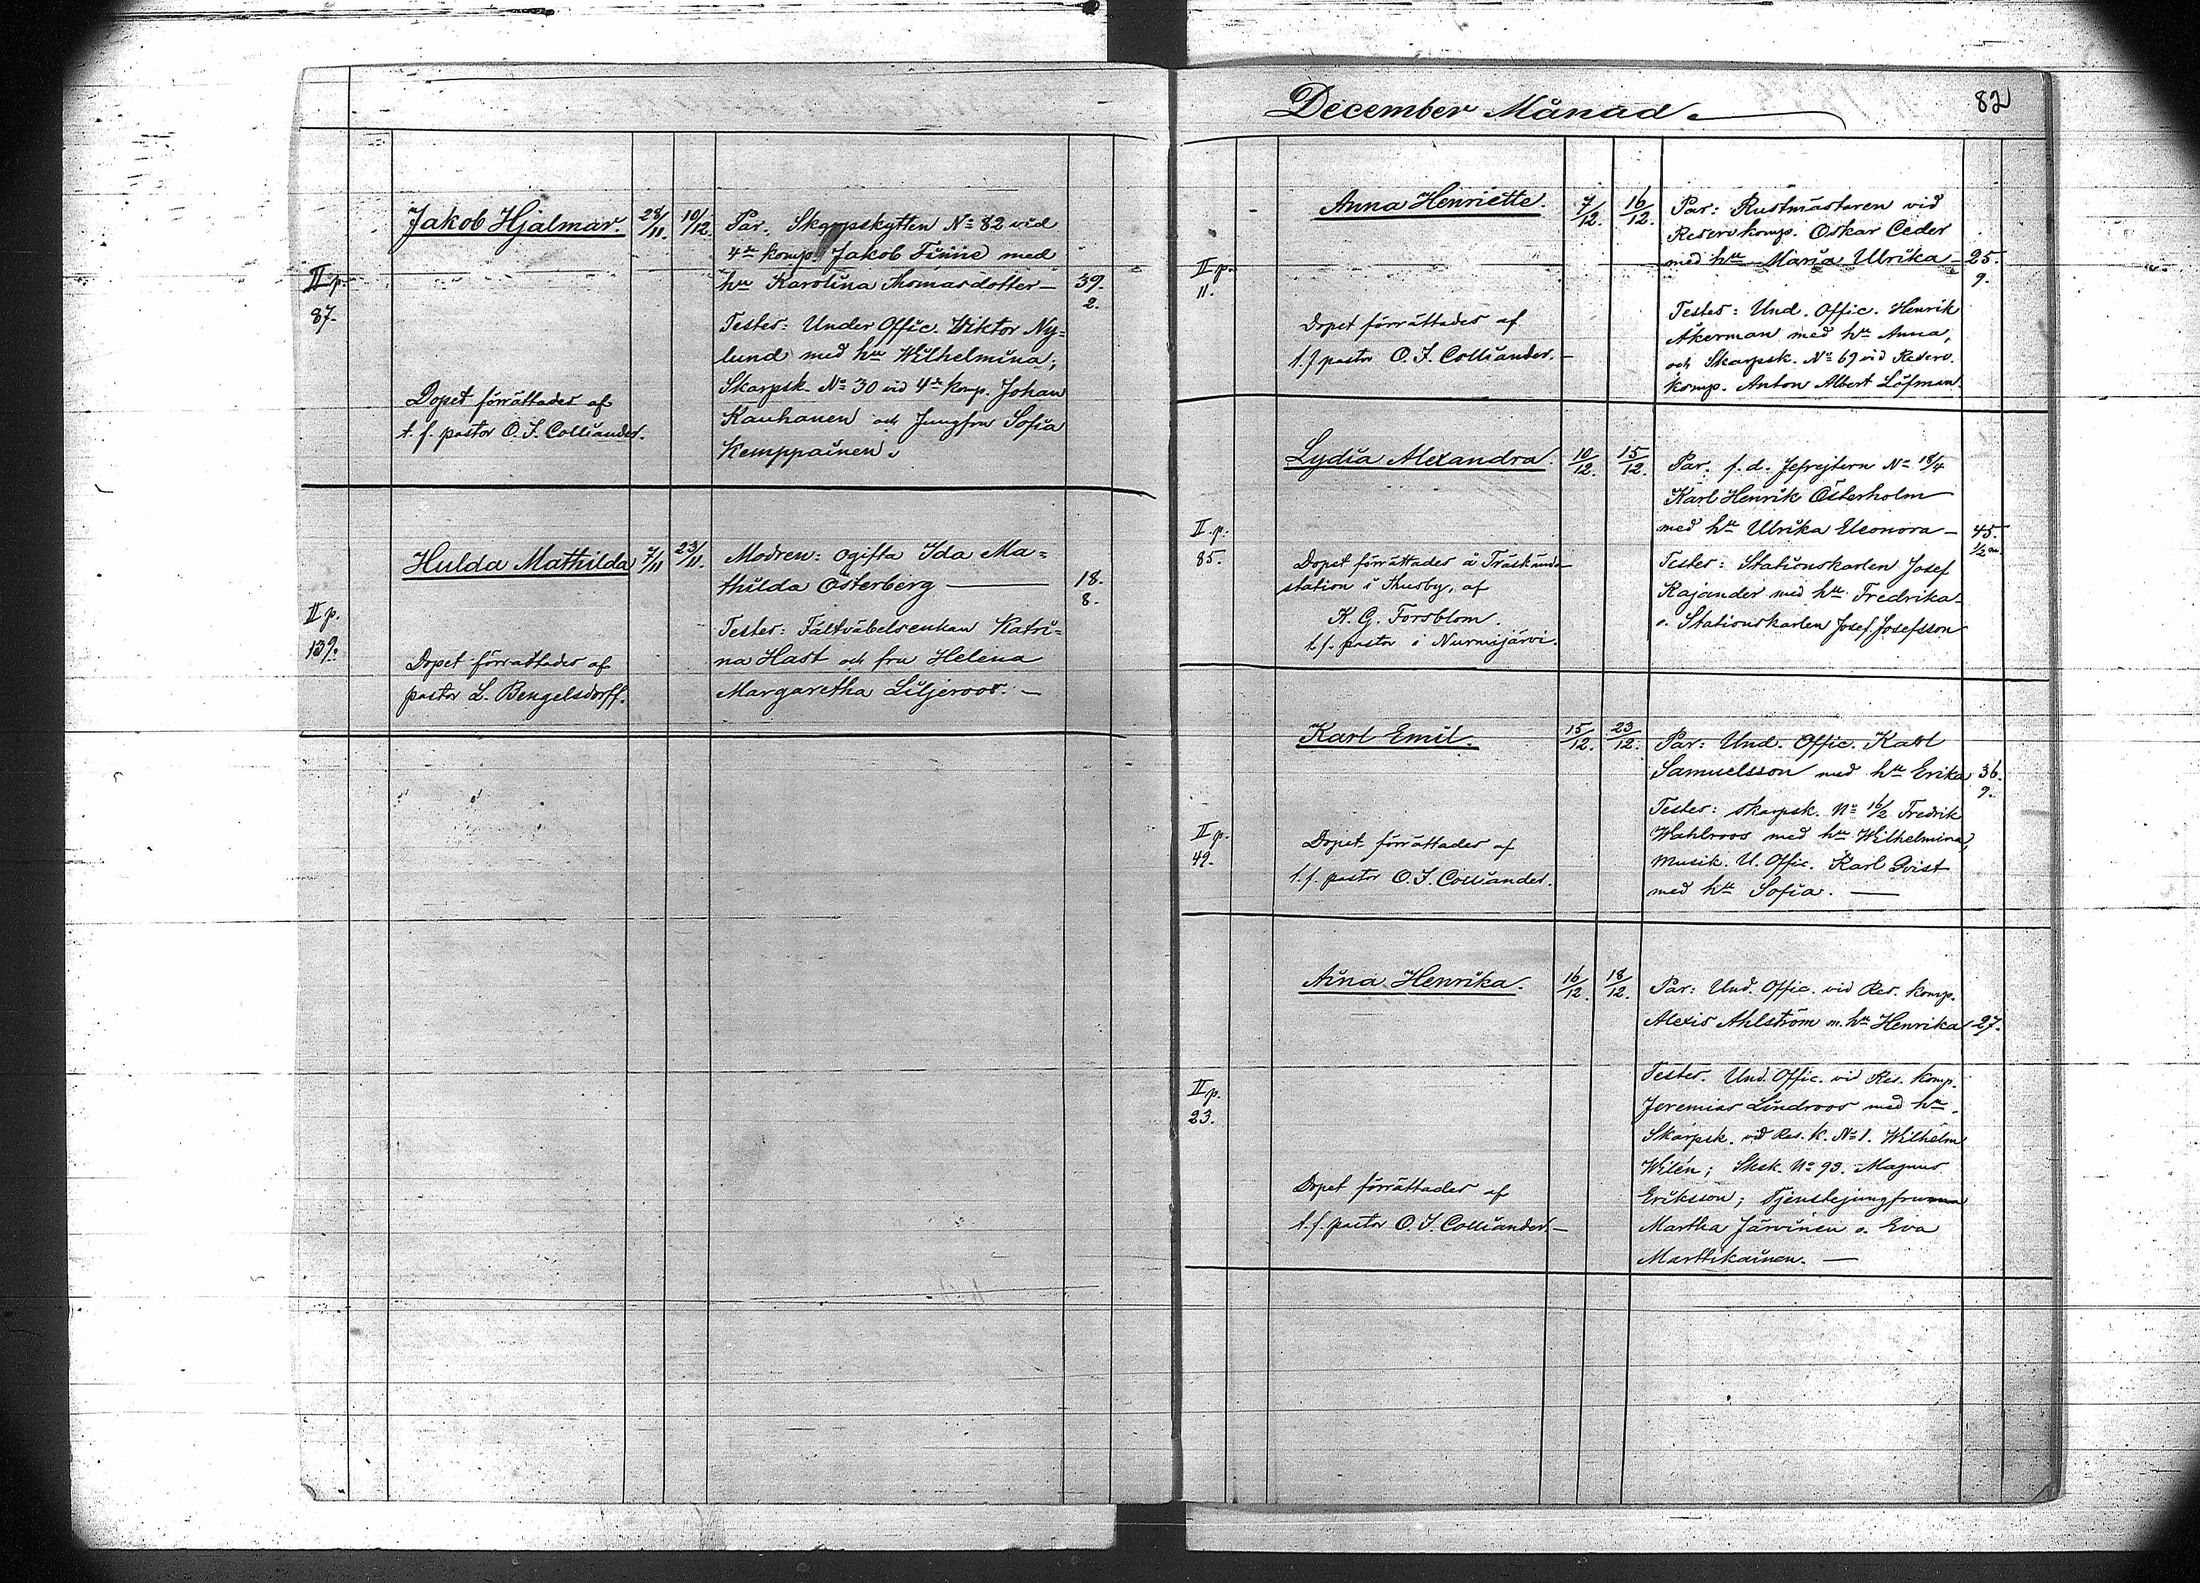 Jakob Hjalmar. 28/11. 10/12. Par. Skarpskytten No 82 vid
4de komp. Jakob Finne med
II p. hu Karolina Thomasdotter — 39.
87. 2.
Testes: Under Offic. Viktor Ny=
lund med hu Wilhelmina;
Skarpsk. No 30 vid 4de komp. Johan
Dopet förrättades af
Kauhanen och Jungfru Sofia
t. f. pastor O. I. Colliander.
Kemppainen.
Hulda Mathilda 7/11 23/11. Modren: ogifta Ida Ma=
thilda Österberg — 18.
8.
II p. Testes: Fältväbelsenkan Katri=
139. Dopet förrättades af na Hast och fru Helena
pastor L. Bengelsdorff. Margaretha Liljeroos. —
December Månad. 82
Anna Henriette. 7/12. 16/12. Par: Rustmästaren vid
Reserv komp. Oskar Ceder
II p. med hu Maria Ulrika — 25.
11. 9.
Testes: Und. Offic. Henrik
Dopet förrättades af Åkerman med hu Anna,
t. f. pastor O. I. Colliander. — och Skarpsk. No 69 vid Reserv.
komp. Anton Albert Löfman.
Lydia Alexandra. 10/12. 15/12. Par. f. d. Jefrejtern No 18/4
Karl Henrik Österholm
II p. med hu Ulrika Eleonora — 45.
85. 1/2 m.
Dopet förrättades å Träskända Testes: Stationskarlen Josef
station i Thusby, af Kajander med hu Fredrika
K. G. Forsblom. o. Stationskarlen Josef Josefsson
t. f. pastor i Nurmijärvi.
Karl Emil. 15/12. 23/12. Par: Und. Offic. Karl
Samuelsson med hu Erika 36.
9.
II p. Testes: skarpsk. No 16/2 Fredrik
49. Dopet förrättades af Wahlroos med hu Wilhelmina,
Musik. U. Offic. Karl Qvist
t. f. pastor O. I. Colliander. med hu Sofia. —
Aina Henrika. 16/12. 18/12. Par: Und. Offic. vid Res. komp.
Alexis Ahlström m. hu Henrika 27.
II p. Testes. Und. Offic. vid Res. komp.
23. Jeremias Lindroos med hu.
Skarpsk. vid Res. K. No 1. Wilhelm
Wilén; Sksk. No 93. Magnus
Dopet förrättades af Eriksson; tjenstejungfru
t. f. pastor O. I. Colliander. — Martha Järvinen o. Eva
Marttikainen. —